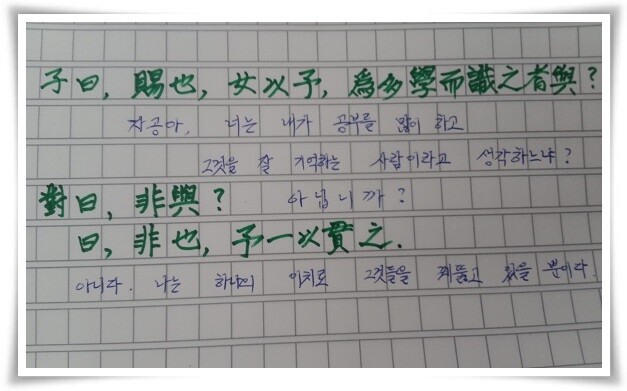 子曰, 賜也, 女以予, 爲多學而識之者與?
자공아, 너는 내가 공부를 많이 하고
그것을 잘 기억하는 사람이라고 생각하느냐?
對曰, 非與? 아닙니까?
曰, 非也, 予一以貫之.
아니다. 나는 하나의 이치로 그것들을 꿰뚫고 있을 뿐이다.